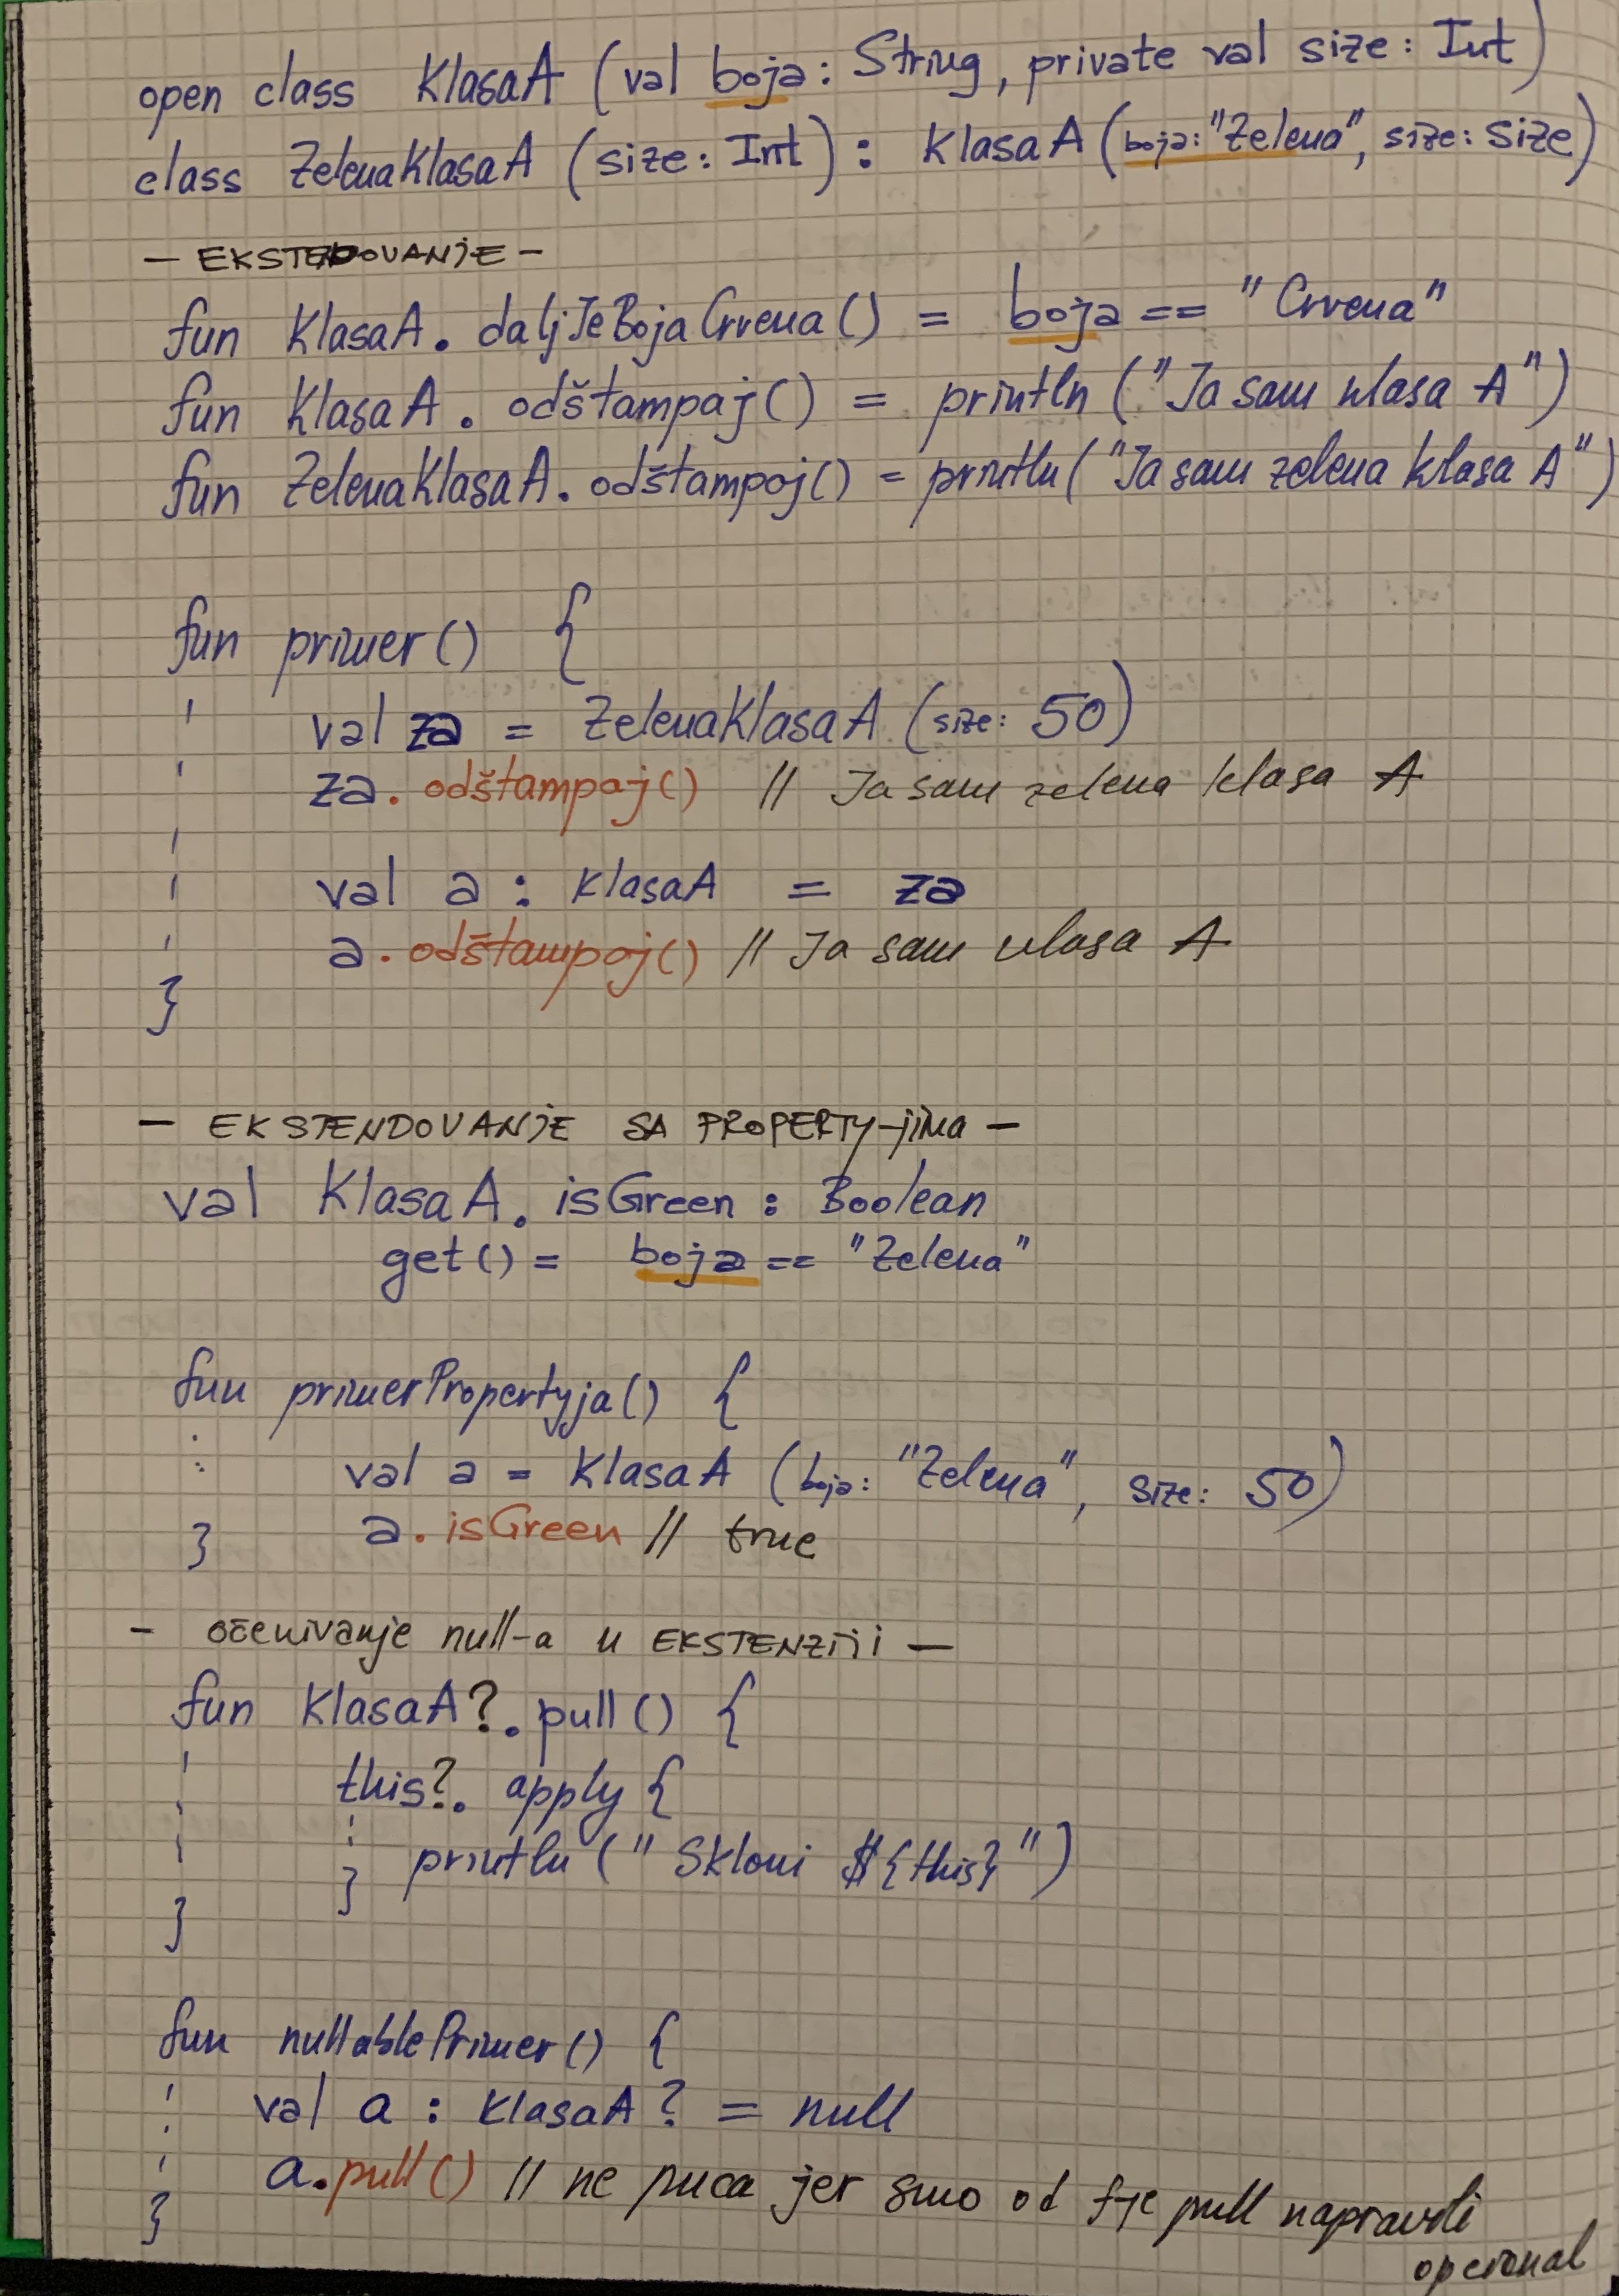 open class KlasaA (val boja: String, private val size: Int)
class ZelenaKlasaA (size: Int) : KlasaA (boja: "Zelena", size: size)
— EKSTENDOVANJE —
fun KlasaA. daljJeBojaCrvena() = boja == "Crvena"
fun KlasaA. odštampaj() = println ("Ja sam klasa A")
fun ZelenaKlasaA. odštampaj() = println ("Ja sam zelena klasa A")
fun primer() {
val za = ZelenaKlasaA (size: 50)
za. odštampaj() // Ja sam zelena klasa A
val a : KlasaA = za
a. odštampaj() // Ja sam klasa A
}
— EKSTENDOVANJE SA PROPERTY-jima —
val KlasaA. isGreen : Boolean
get() = boja == "Zelena"
fun primerPropertyja() {
val a = KlasaA (boja: "Zelena", size: 50)
a. isGreen // true
}
- očekivanje null-a u EKSTENZIJI —
fun KlasaA?. pull() {
this?. apply {
println (" Skloni ${this}")
}
}
fun nullablePrimer() {
val a : KlasaA? = null
a.pull() // ne puca jer smo od f-je pull napravili
opcional
}